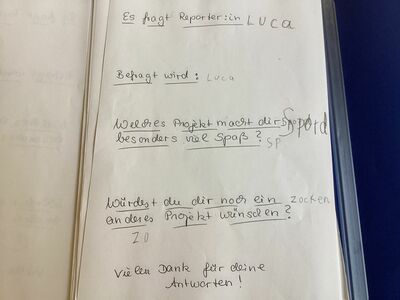 Es fragt Reporter:in LUCA
Befragt wird: Luca
Welches Projekt macht dir Spord
besonders viel Spaß? SP
Würdest du dir noch ein zocken
anderes Projekt wünschen?
ZO
Vielen Dank für deine
Antworten!